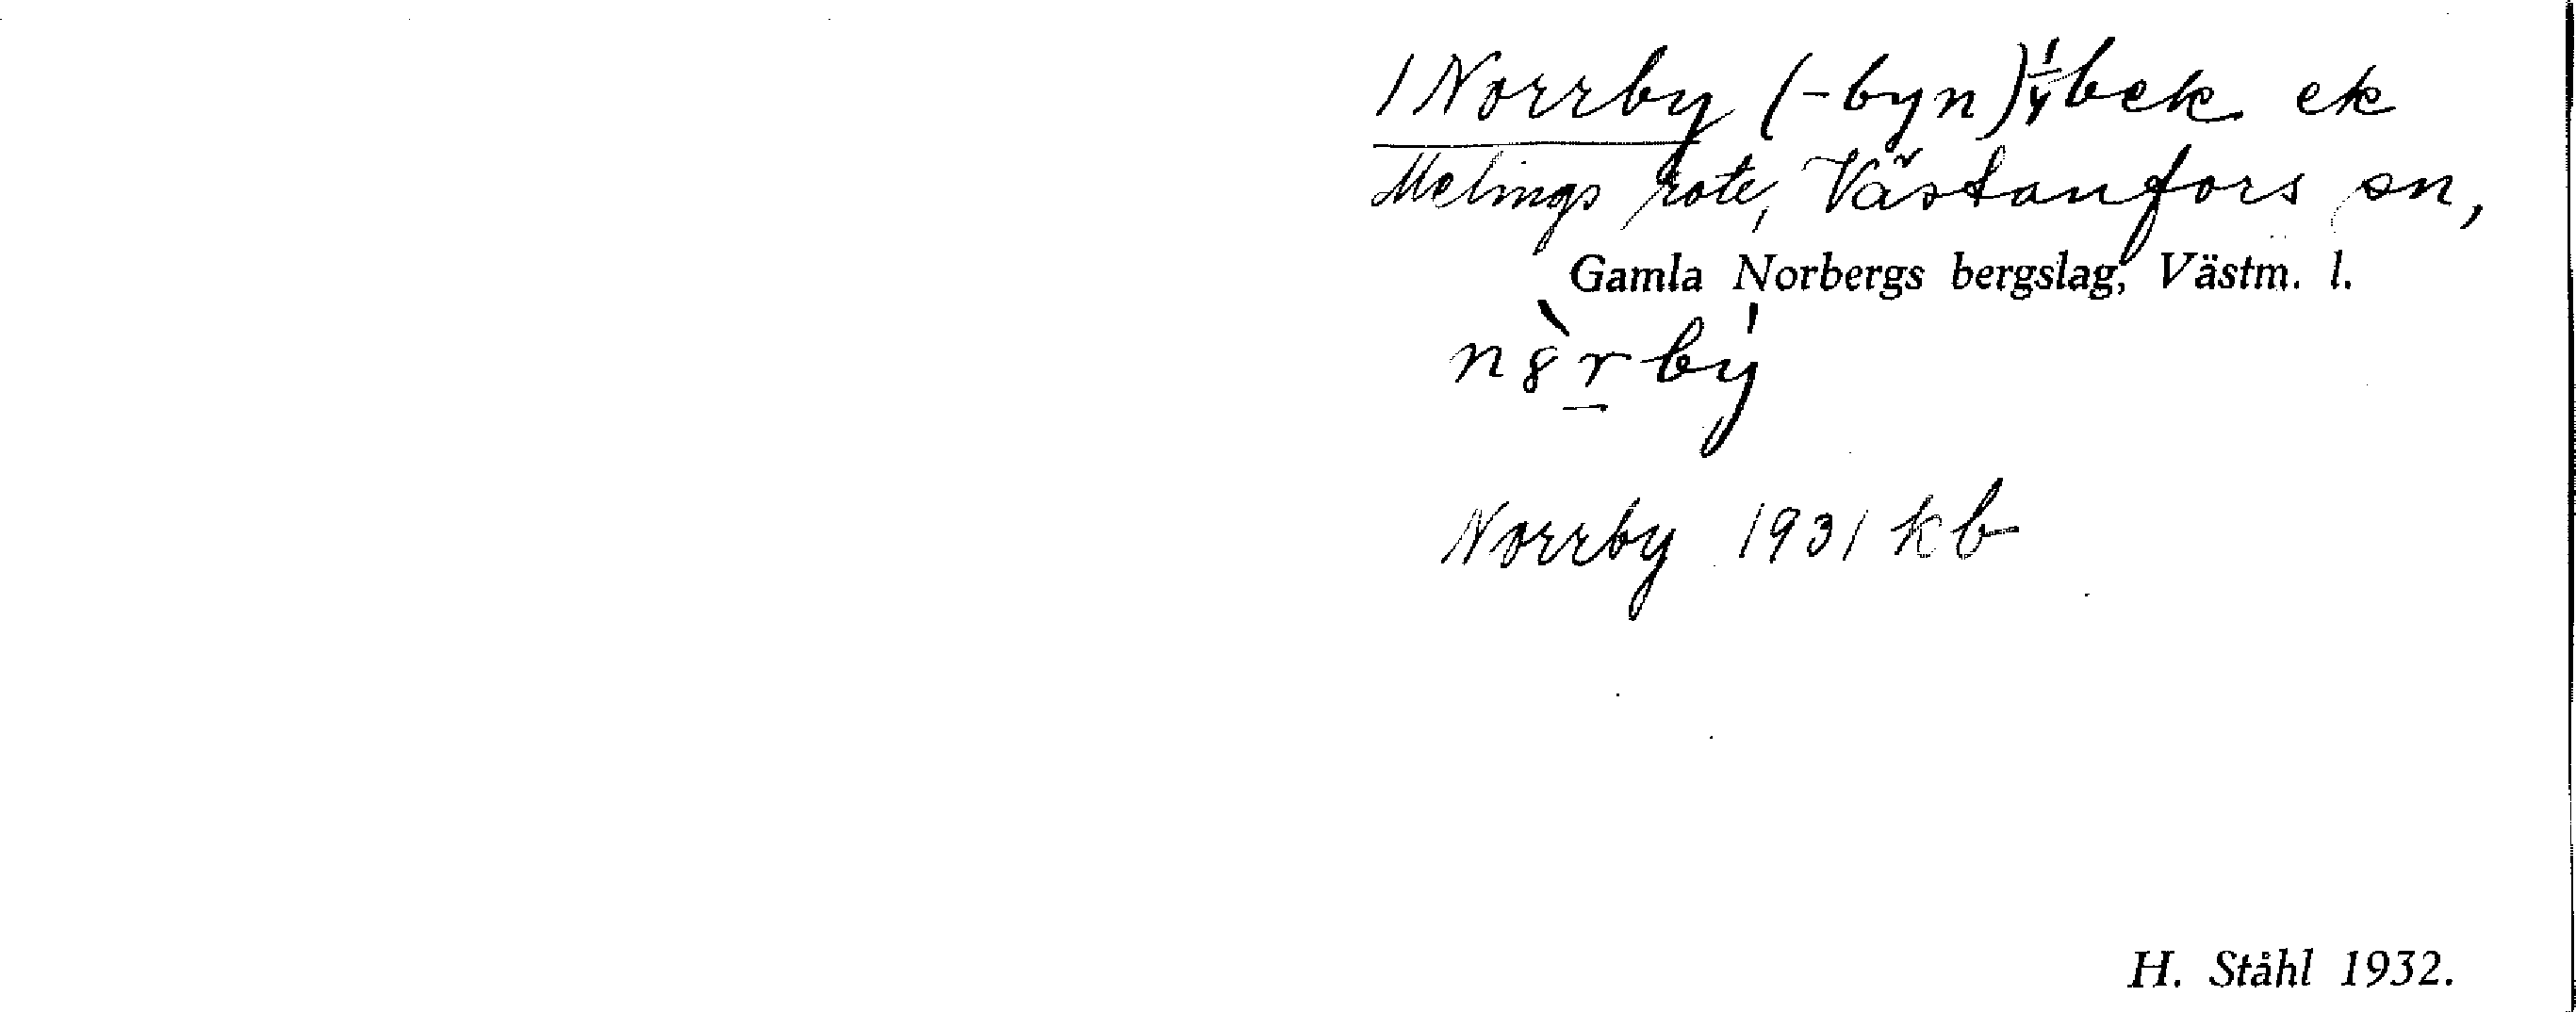 1 Norrby (-byn) 1/4 bek ek
Melings rote, Västanfors sn,
Gamla Norbergs bergslag, Västm. l.
n8̀rbý
Norrby 1931 kb
H. Ståhl 1932.